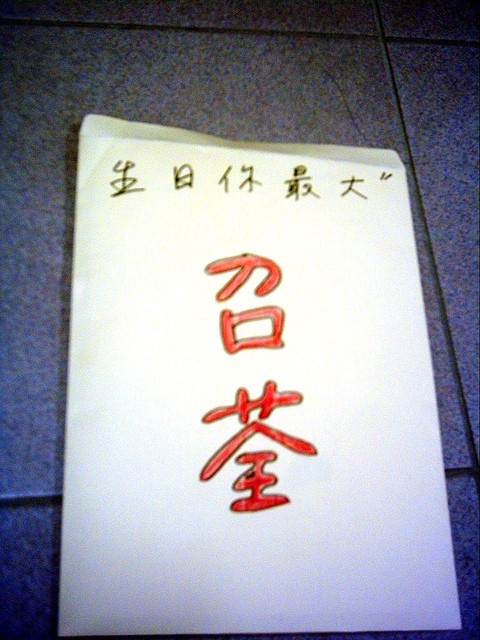 生日你最大"
召
荃